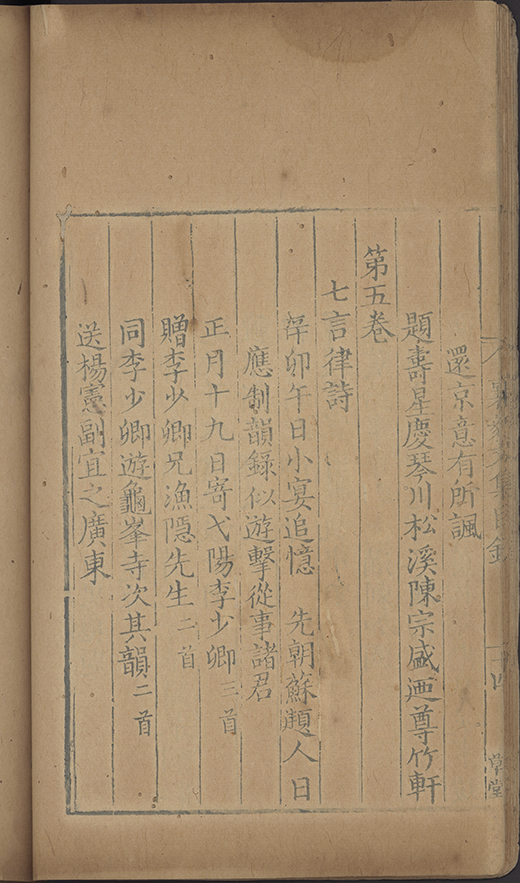 還京意有所諷
題壽星慶琴川松溪陳宗盛廼尊竹軒
第五卷
七言律詩
辛卯午日小宴追憶　先朝蘇題人日
應制韻錄似遊擊從事諸君
正月十九日寄弋陽李少卿三首
贈李少卿兄漁隱先生二首
同李少卿遊龜峯寺次其韻二首
送楊憲副宜之廣東
集目錄
十四
草堂